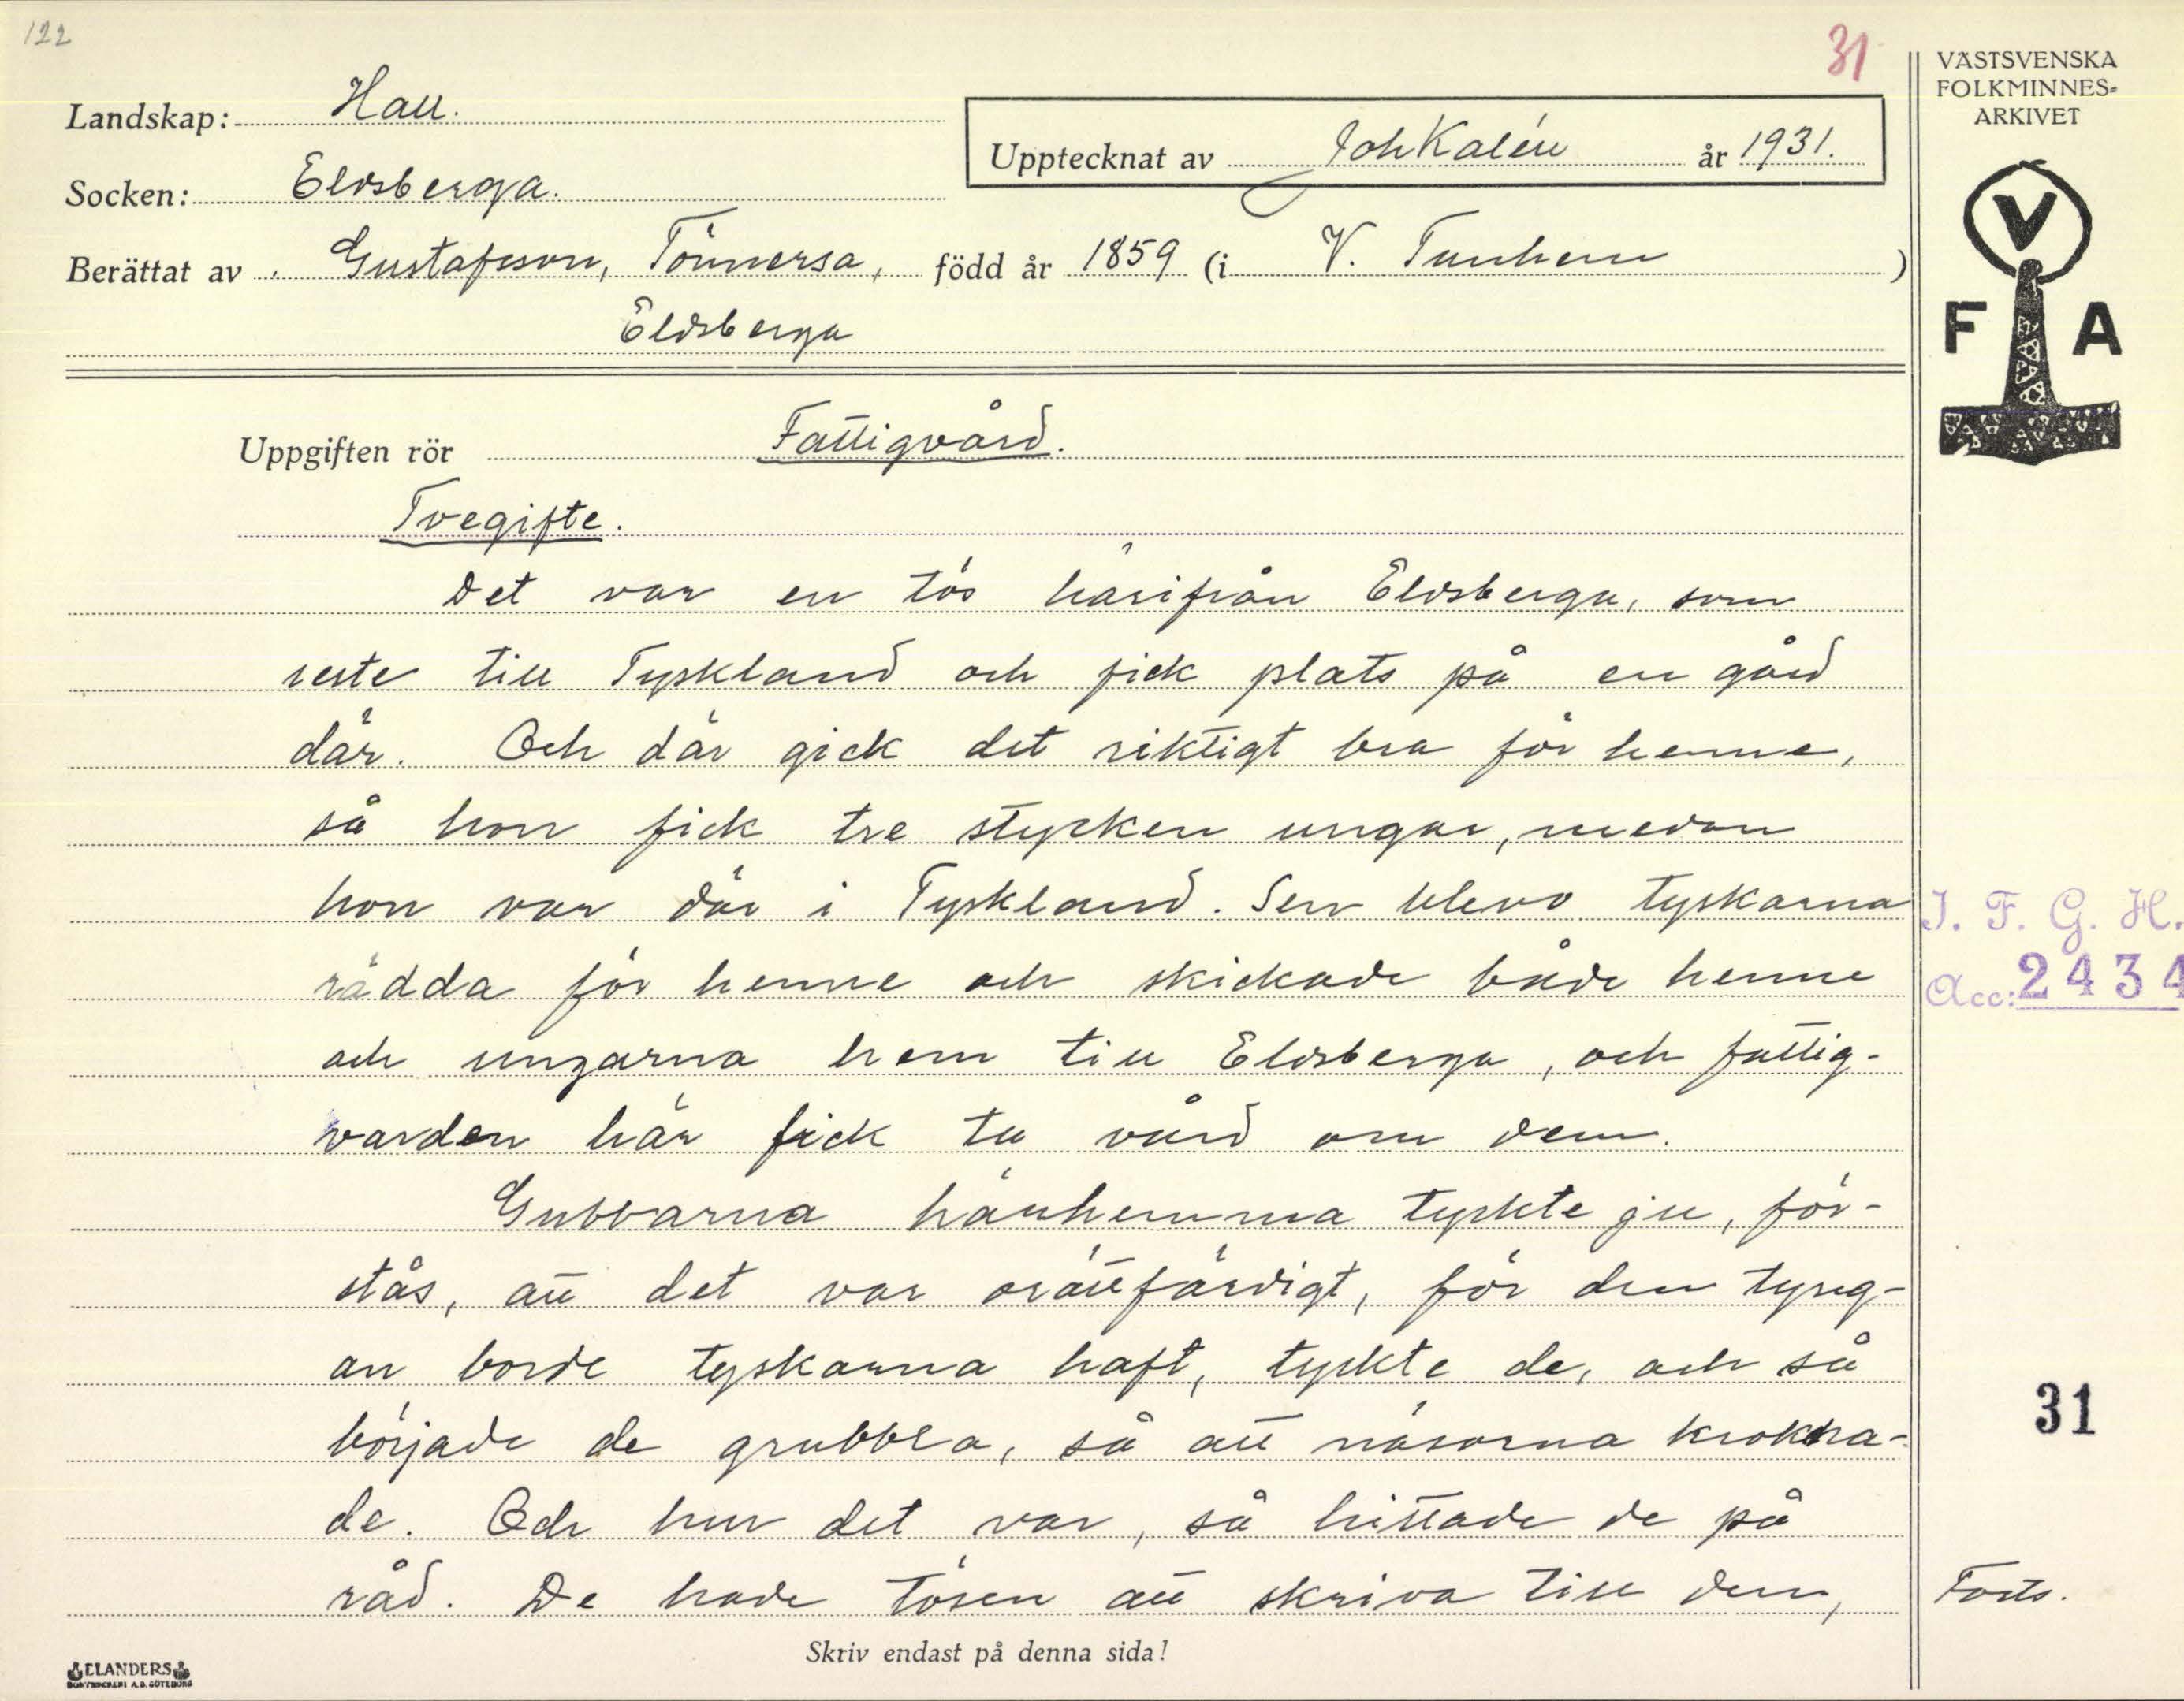 122
31
VÄSTSVENSKA
FOLKMINNES=
ARKIVET
Landskap: Hall.
Upptecknat av Joh Kalén år 1931.
Socken: Eldsberga.
Berättat av Gustafsson, Tönnersa, född år 1859 (i V. Tunhem)
Eldsberga
V
F A
Uppgiften rör Fattigvård.
Tvegifte.
Det var en tös härifrån Eldsberga, som
reste till Tyskland och fick plats på en gård
där. Och där gick det riktigt bra för henne,
så hon fick tre stycken ungar, medan
hon var där i Tyskland. Sen blevo tyskarna
rädda för henne och skickade både henne
och ungarna hem till Eldsberga, och fattig-
varden här fick ta vård om dem.
Gubbarna härhemma tyckte ju, för-
stås, att det var orättfärdigt, för den tyng-
an borde tyskarna haft, tyckte de, och så
började de grubbla, så att näsorna krokna-
de. Och hur det var, så hittade de på
råd. De hade tösen att skriva till dem,
I. F. G. H.
Acc: 2434
31
Forts.
Skriv endast på denna sida!
ELANDERS
BOKTRYCKERI A.B. GÖTEBORG